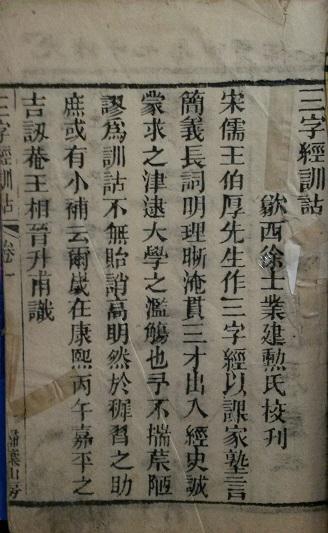 三字經訓詁
歙西徐士業建勲氏校刊
宋儒王伯厚先生作三字經以課家塾言
簡義長詞明理晰淹貫三才出入經史誠
蒙求之津逮大學之濫觴也予不揣荒陋
謬爲訓詁不無貽誚高明然於稺習之助
庶或有小補云爾歲在康熙丙午嘉平之
吉訒菴王相晉升甫識
三字經訓詁 卷一
掃葉山房